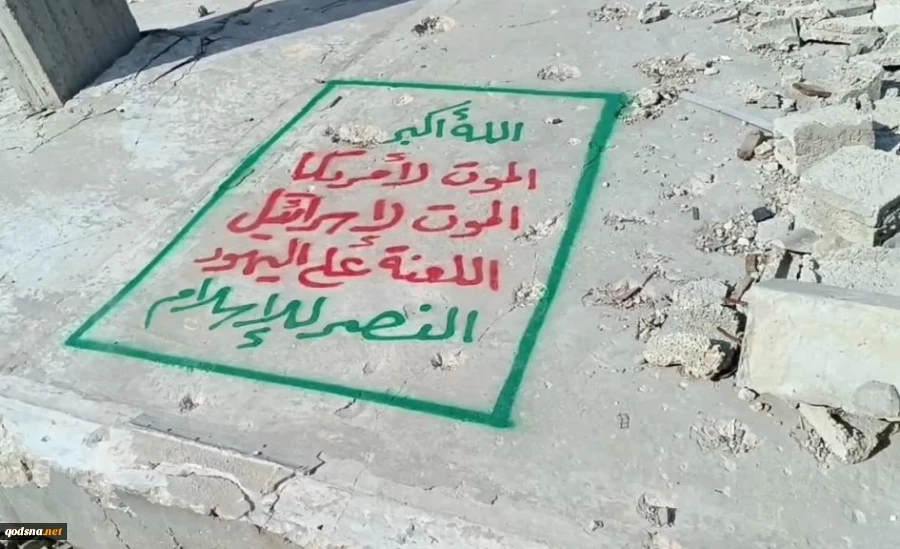 الله أكبر
الموت لأمريكا
الموت لإسرائيل
اللعنة على اليهود
النصر للإسلام
qodsna.net